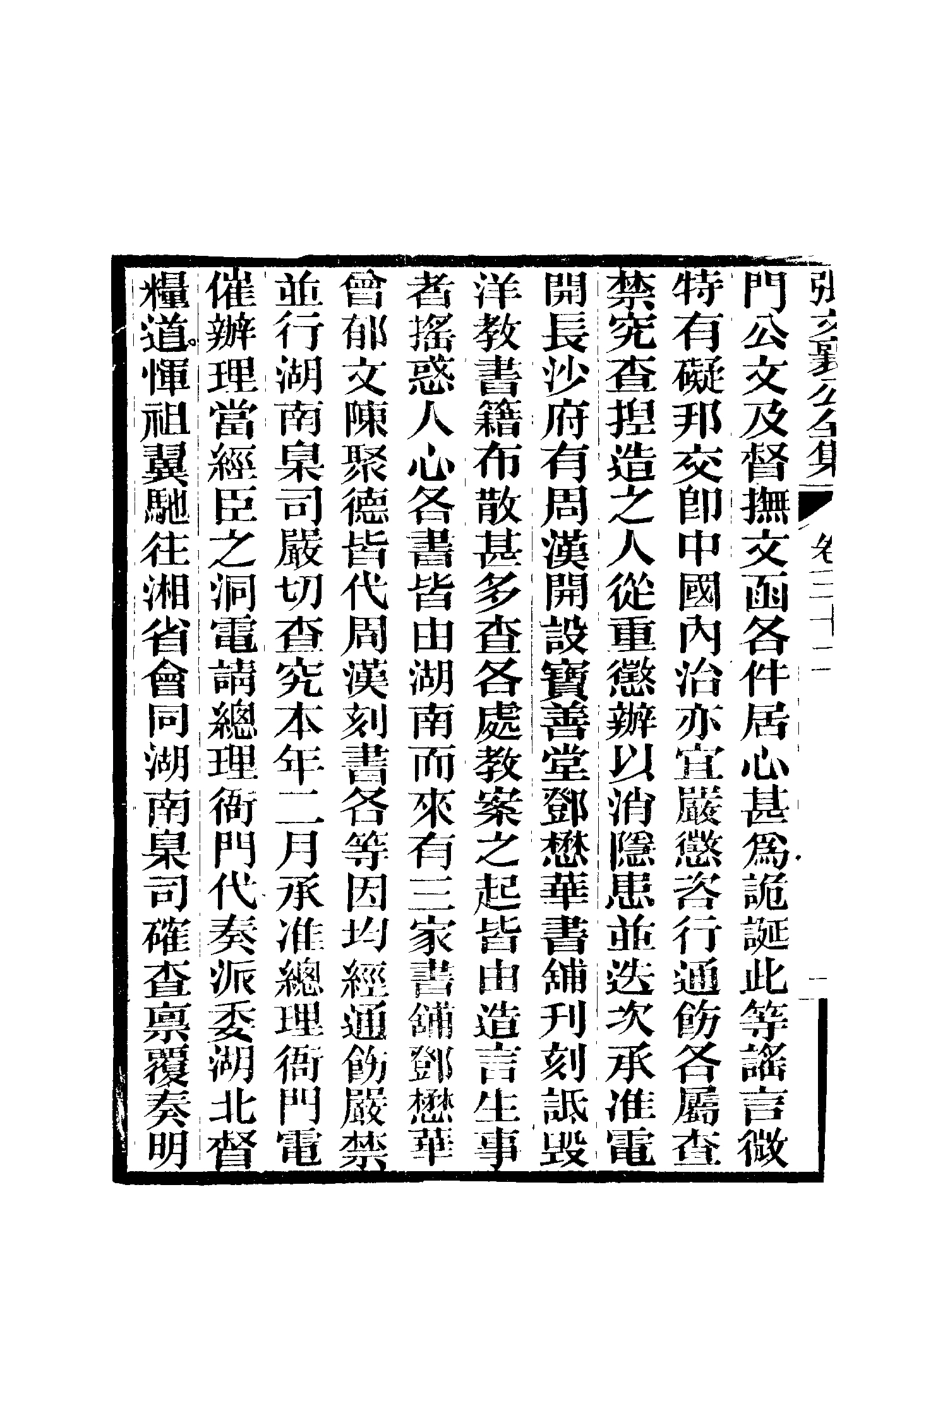 張文襄公全集 卷三十二 一
門公文及督撫文函各件居心甚爲詭誕此等謠言微
特有礙邦交卽中國內治亦宜嚴懲咨行通飭各屬查
禁究查揑造之人從重懲辦以消隱患並迭次承准電
開長沙府有周漢開設寶善堂鄧懋華書舖刊刻詆毀
洋教書籍布散甚多查各處教案之起皆由造言生事
者搖惑人心各書皆由湖南而來有三家書舖鄧懋華
曾郁文陳聚德皆代周漢刻書各等因均經通飭嚴禁
並行湖南臬司嚴切查究本年二月承准總理衙門電
催辦理當經臣之洞電請總理衙門代奏派委湖北督
糧道惲祖翼馳往湘省會同湖南臬司確查禀覆奏明